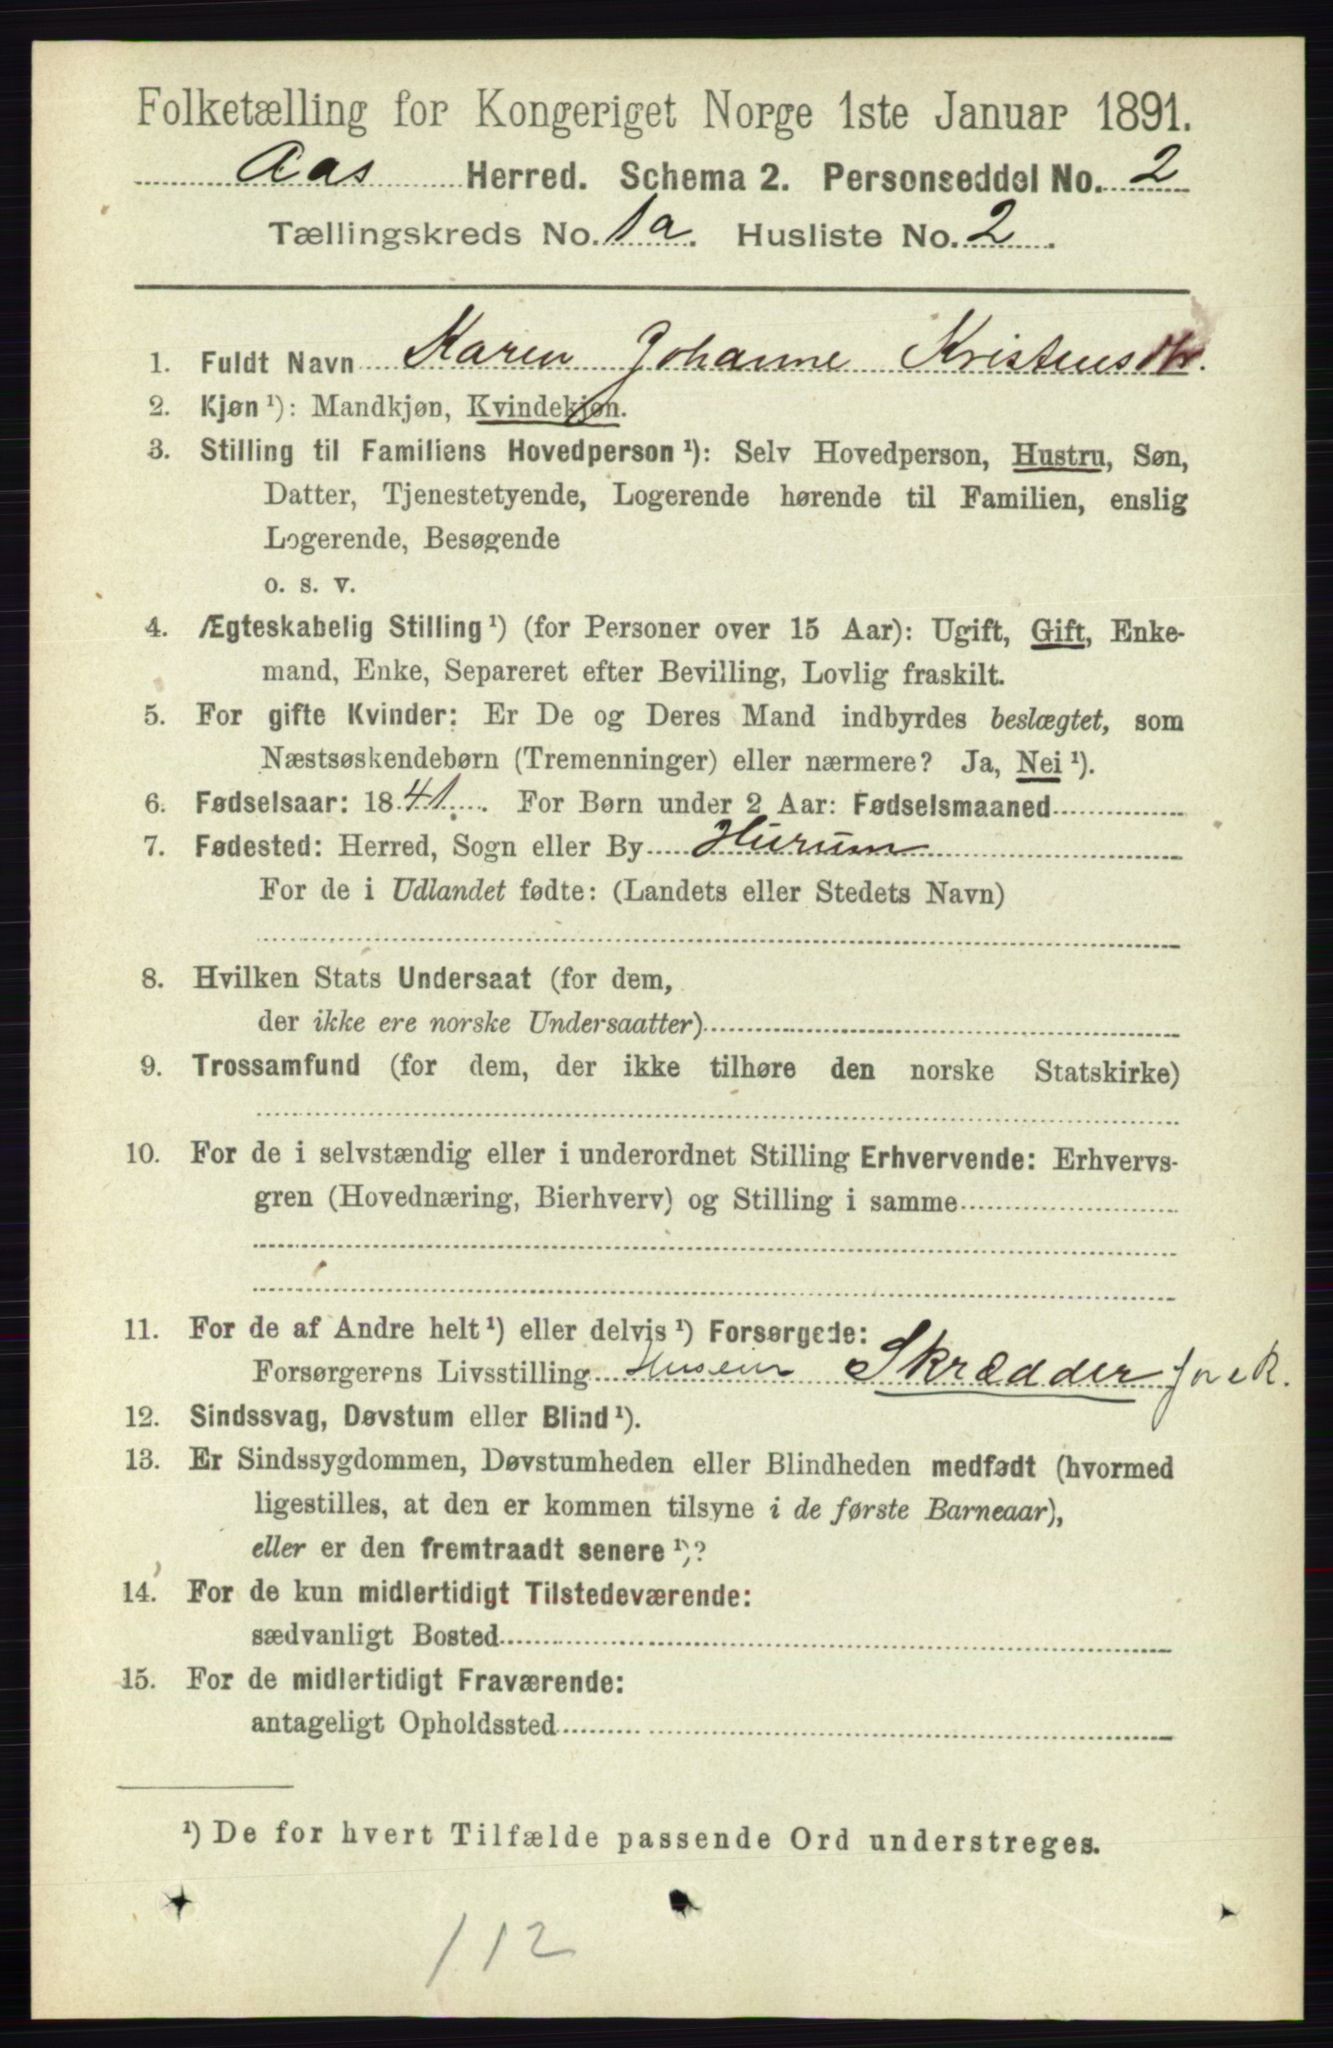 Folketælling for Kongeriget Norge 1ste Januar 1891.
Aas Herred. Schema 2. Personseddel No. 2
Tællingskreds No. 1a. Husliste No. 2.
1. Fuldt Navn Karen Johanne Kristensdtr.
2. Kjøn ¹): Mandkjøn, Kvindekjøn.
3. Stilling til Familiens Hovedperson ¹): Selv Hovedperson, Hustru, Søn,
Datter, Tjenestetyende, Logerende hørende til Familien, enslig
Logerende, Besøgende
o. s. v.
4. Ægteskabelig Stilling ¹) (for Personer over 15 Aar): Ugift, Gift, Enke-
mand, Enke, Separeret efter Bevilling, Lovlig fraskilt.
5. For gifte Kvinder: Er De og Deres Mand indbyrdes beslægtet, som
Næstsøskendebørn (Tremenninger) eller nærmere? Ja, Nei ¹).
6. Fødselsaar: 1841. For Børn under 2 Aar: Fødselsmaaned
7. Fødested: Herred, Sogn eller By Hurum
For de i Udlandet fødte: (Landets eller Stedets Navn)
8. Hvilken Stats Undersaat (for dem,
der ikke ere norske Undersaatter)
9. Trossamfund (for dem, der ikke tilhøre den norske Statskirke)
10. For de i selvstændig eller i underordnet Stilling Erhvervende: Erhvervs-
gren (Hovednæring, Bierhverv) og Stilling i samme
11. For de af Andre helt ¹) eller delvis ¹) Forsørgede:
Forsørgerens Livsstilling Huseier Skrædder for e R.
12. Sindssvag, Døvstum eller Blind ¹).
13. Er Sindssygdommen, Døvstumheden eller Blindheden medfødt (hvormed
ligestilles, at den er kommen tilsyne i de første Barneaar),
eller er den fremtraadt senere ¹)?
14. For de kun midlertidigt Tilstedeværende:
sædvanligt Bosted
15. For de midlertidigt Fraværende:
antageligt Opholdssted
¹) De for hvert Tilfælde passende Ord understreges.
112